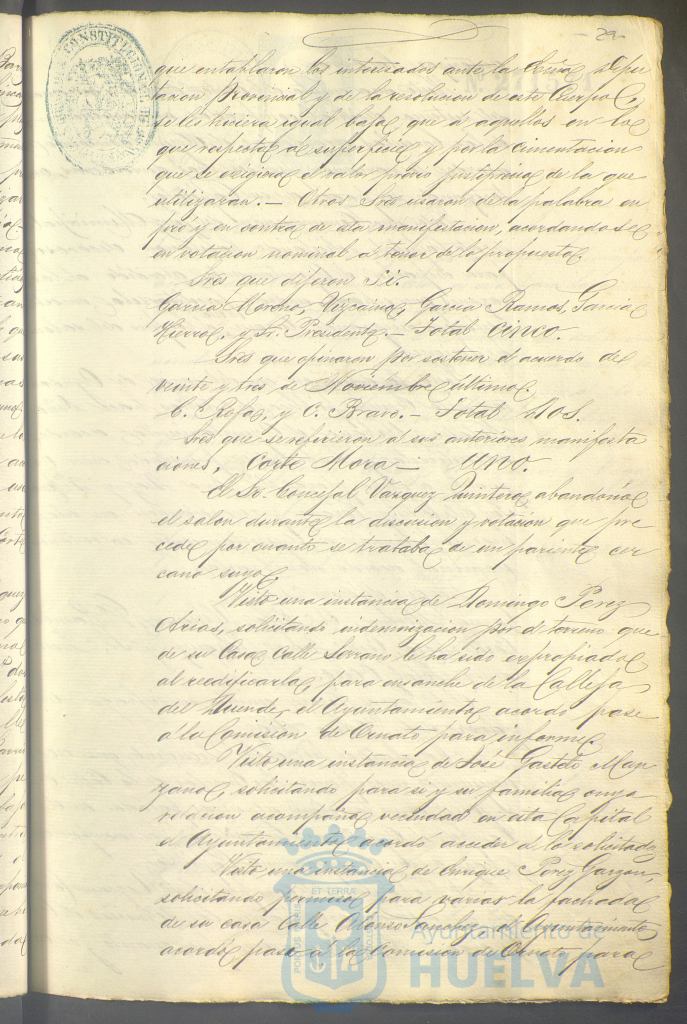 29
que entablaron los interesados ante la Exma Dipu
tacion Provincial y de la resolucion de este Cuerpo,
se les hiciera igual baja que á aquellos en lo
que respecta al superficie y por la cimentacion
que se exigiera el valor previo justiprecio de la que
utilizaran.— Otros Sres usaron de la palabra en
pró y en contra de esta manifestacion, acordandose
en votacion nominal a tenor de lo propuesto.
Sres que dijeron Sí.
Garcia Moreno, Vizcaino, Garcia Ramos, Garcia
Hierro, y Sr. Presidente.— Total cinco.
Sres que opinaron por sostener el acuerdo de
veinte y tres de Noviembre último.
C. Rofa, y C. Bravo.— Total dos.
Sres que se refirieron á sus anteriores manifesta
ciones, Corte Mora— uno.
El Sr. Concejal Vazquez Quintero, abandonó
el salon durante la discusion y votacion que pre
cede por cuanto se trataba de un pariente cer
cano suyo.
Visto una instancia de Domingo Perez
Arias, solicitando indemnizacion por el terreno que
de su Casa calle Serrano le ha sido expropiado
al reedificarla, para ensanche de la Calleja
del Duende, el Ayuntamiento acordo pase
a la Comision de Ornato para informe.
Visto una instancia de José Gastelo Man
zano, solicitando para si y su familia cuya
relacion acompaña vecindad en esta Capital
el Ayuntamiento acordo acceder á lo solicitado
Visto una instancia de Enrique Perez Garzon,
solicitando permiso para variar la fachada
de su casa Calle Alonso Sanchez el Ayuntamiento
acordó pase á la Comision de Ornato para
Ayuntamiento de
HUELVA